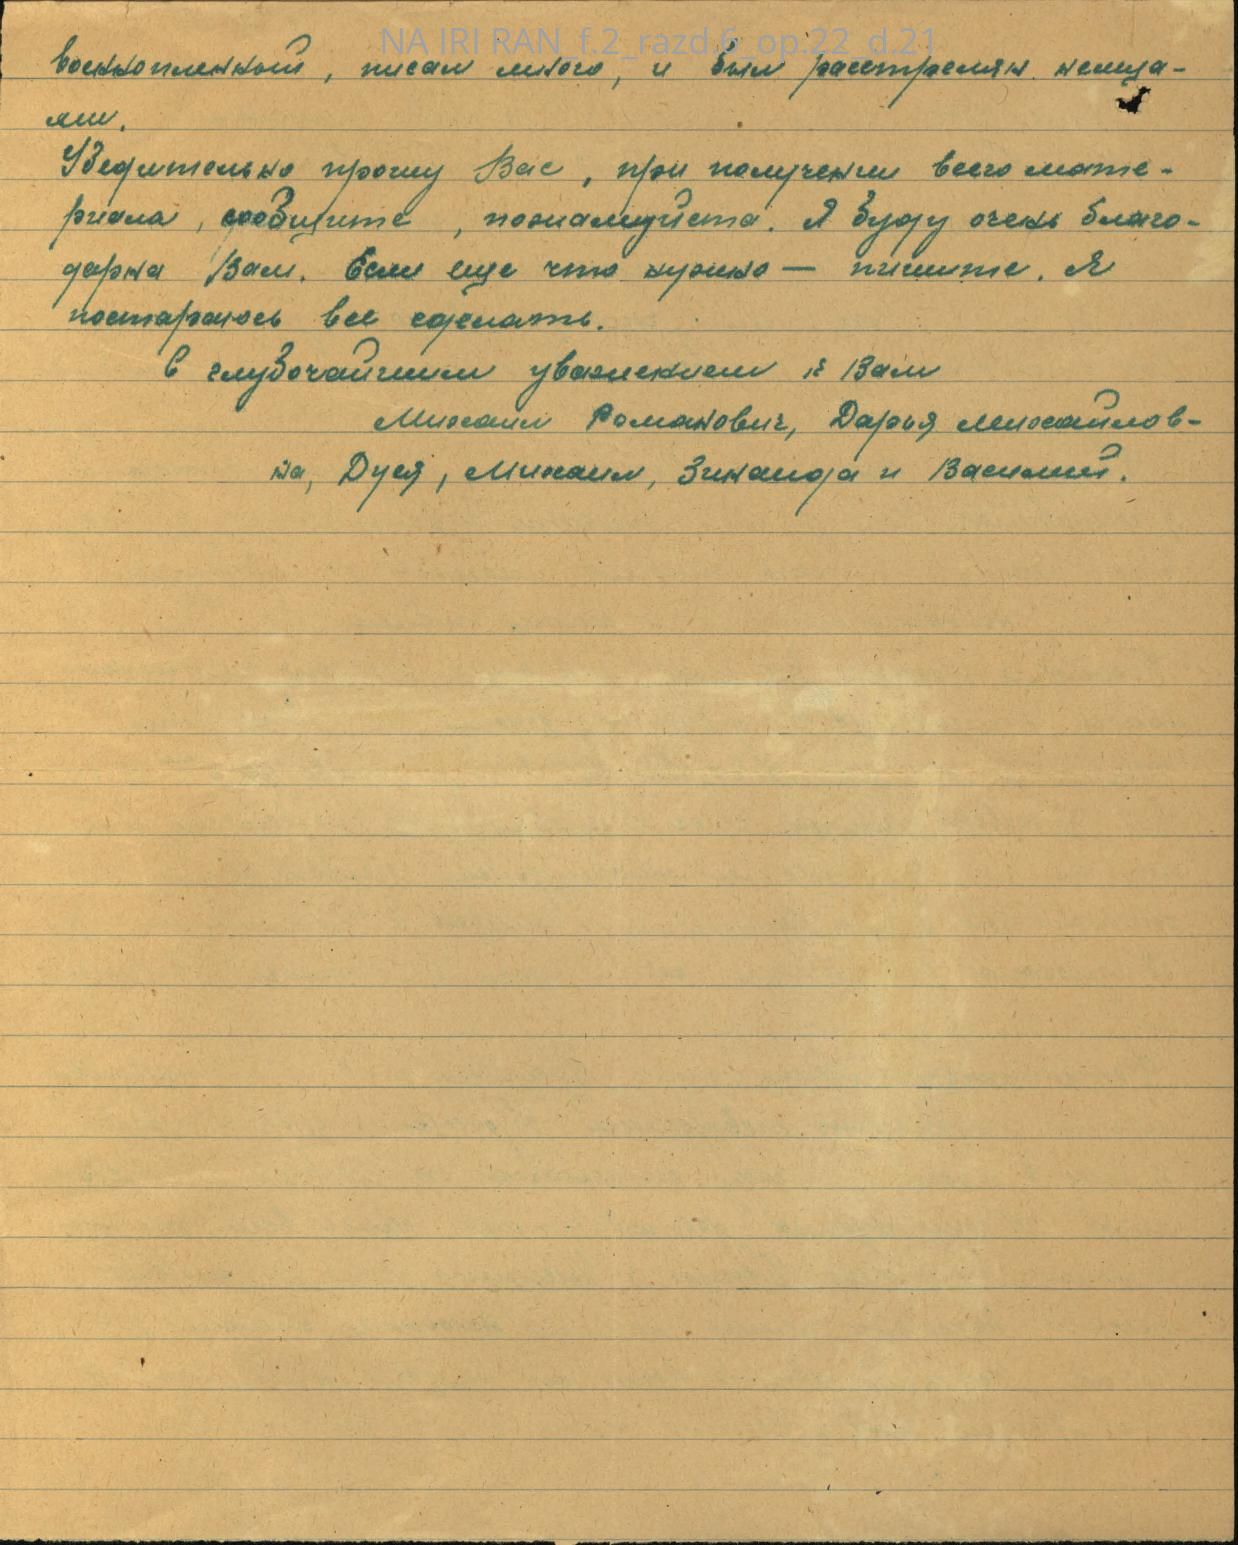 NA IRI RAN f.2_razd.6_op.22_d.21
военнопленный, писал много, и был расстрелян немца-
ми.
Убедительно прошу Вас, при получении всего мате-
риала, сообщите, пожалуйста. Я буду очень благо-
дарна Вам. Если еще что нужно — пишите. Я
постараюсь все сделать.
С глубочайшим уважением к Вам
Михаил Романович, Дарья Михайлов-
на, Дуся, Михаил, Зинаида и Василий.